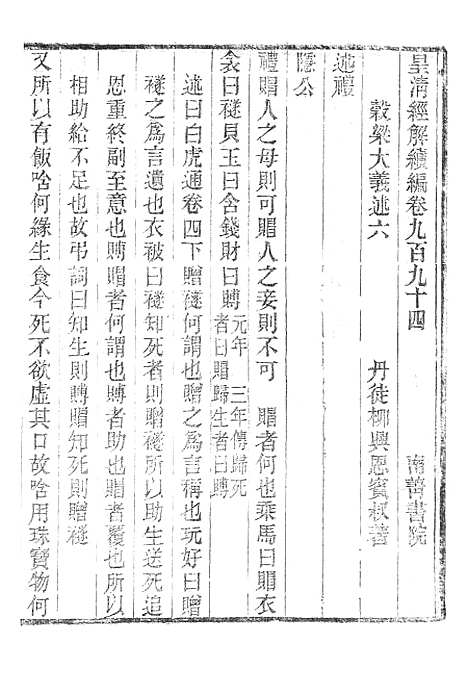 皇淸經解續編卷九百九十四
南菁書院
穀梁大義述六
丹徒柳興恩賓叔著
述禮
隱公
禮賵人之母則可賵人之妾則不可 賵者何也乘馬曰賵衣
衾曰襚貝玉曰含錢財曰賻元年 三年傳歸死者曰賵歸生者曰賻
述曰白虎通卷四下贈襚何謂也贈之爲言稱也玩好曰贈
襚之爲言遺也衣被曰襚知死者則贈襚所以助生送死追
恩重終副至意也賻賵者何謂也賻者助也賵者覆也所以
相助給不足也故弔詞曰知生則賻賵知死則贈襚
又所以有飯唅何緣生食今死不欲虛其口故唅用珠寶物何